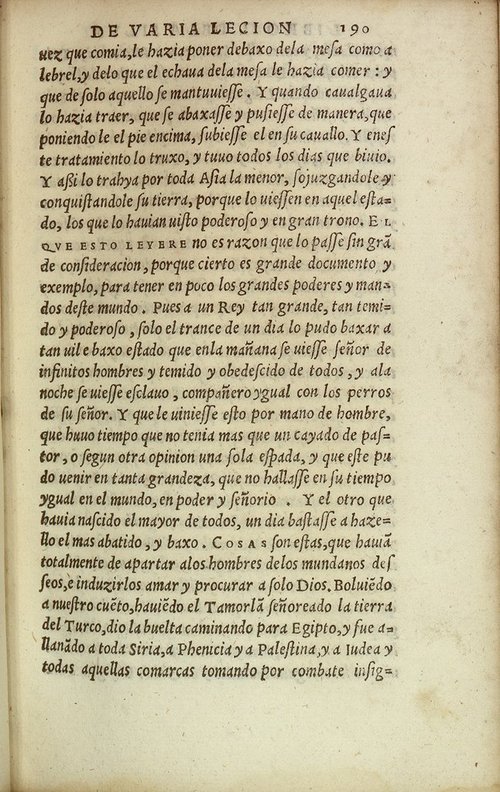 DE VARIA LECION 190
uez que comia, le hazia poner debaxo dela mesa como a
lebrel, y delo que el echaua dela mesa le hazia comer : y
que de solo aquello se mantuuiesse . Y quando caualgaua
lo hazia traer, que se abaxasse y pusiesse de manera, que
poniendo le el pie encima, subiesse el en su cauallo. Y enes
te tratamiento lo truxo, y tuuo todos los dias que biuio.
Y assi lo trahya por toda Asia la menor, sojuzgandole y
conquistandole su tierra, porque lo uiessen en aquel esta-
do, los que lo hauian uisto poderoso y en gran trono. EL
QVE ESTO LEYERE no es razon que lo passe sin grã
de consideracion, porque cierto es grande documento y
exemplo, para tener en poco los grandes poderes y man-
dos deste mundo . Pues a un Rey tan grande, tan temi-
do y poderoso , solo el trance de un dia lo pudo baxar a
tan uil e baxo estado que enla mañana se uiesse señor de
infinitos hombres y temido y obedescido de todos , y ala
noche se uiesse esclauo , compañero ygual con los perros
de su señor. Y que le uiniesse esto por mano de hombre,
que huuo tiempo que no tenia mas que un cayado de pas-
tor, o segun otra opinion una sola espada, y que este pu
do uenir en tanta grandeza, que no hallasse en su tiempo
ygual en el mundo, en poder y señorio . Y el otro que
hauia nascido el mayor de todos, un dia bastasse a haze-
llo el mas abatido , y baxo . COSAS son estas, que hauiã
totalmente de apartar alos hombres delos mundanos des
seos, e induzirlos amar y procurar a solo Dios. Boluiẽdo
a nuestro cuẽto, hauiẽdo el Tamorlã señoreado la tierra
del Turco, dio la buelta caminando para Egipto, y fue a-
llanãdo a toda Siria, a Phenicia y a Palestina, y a Iudea y
todas aquellas comarcas tomando por combate insig-